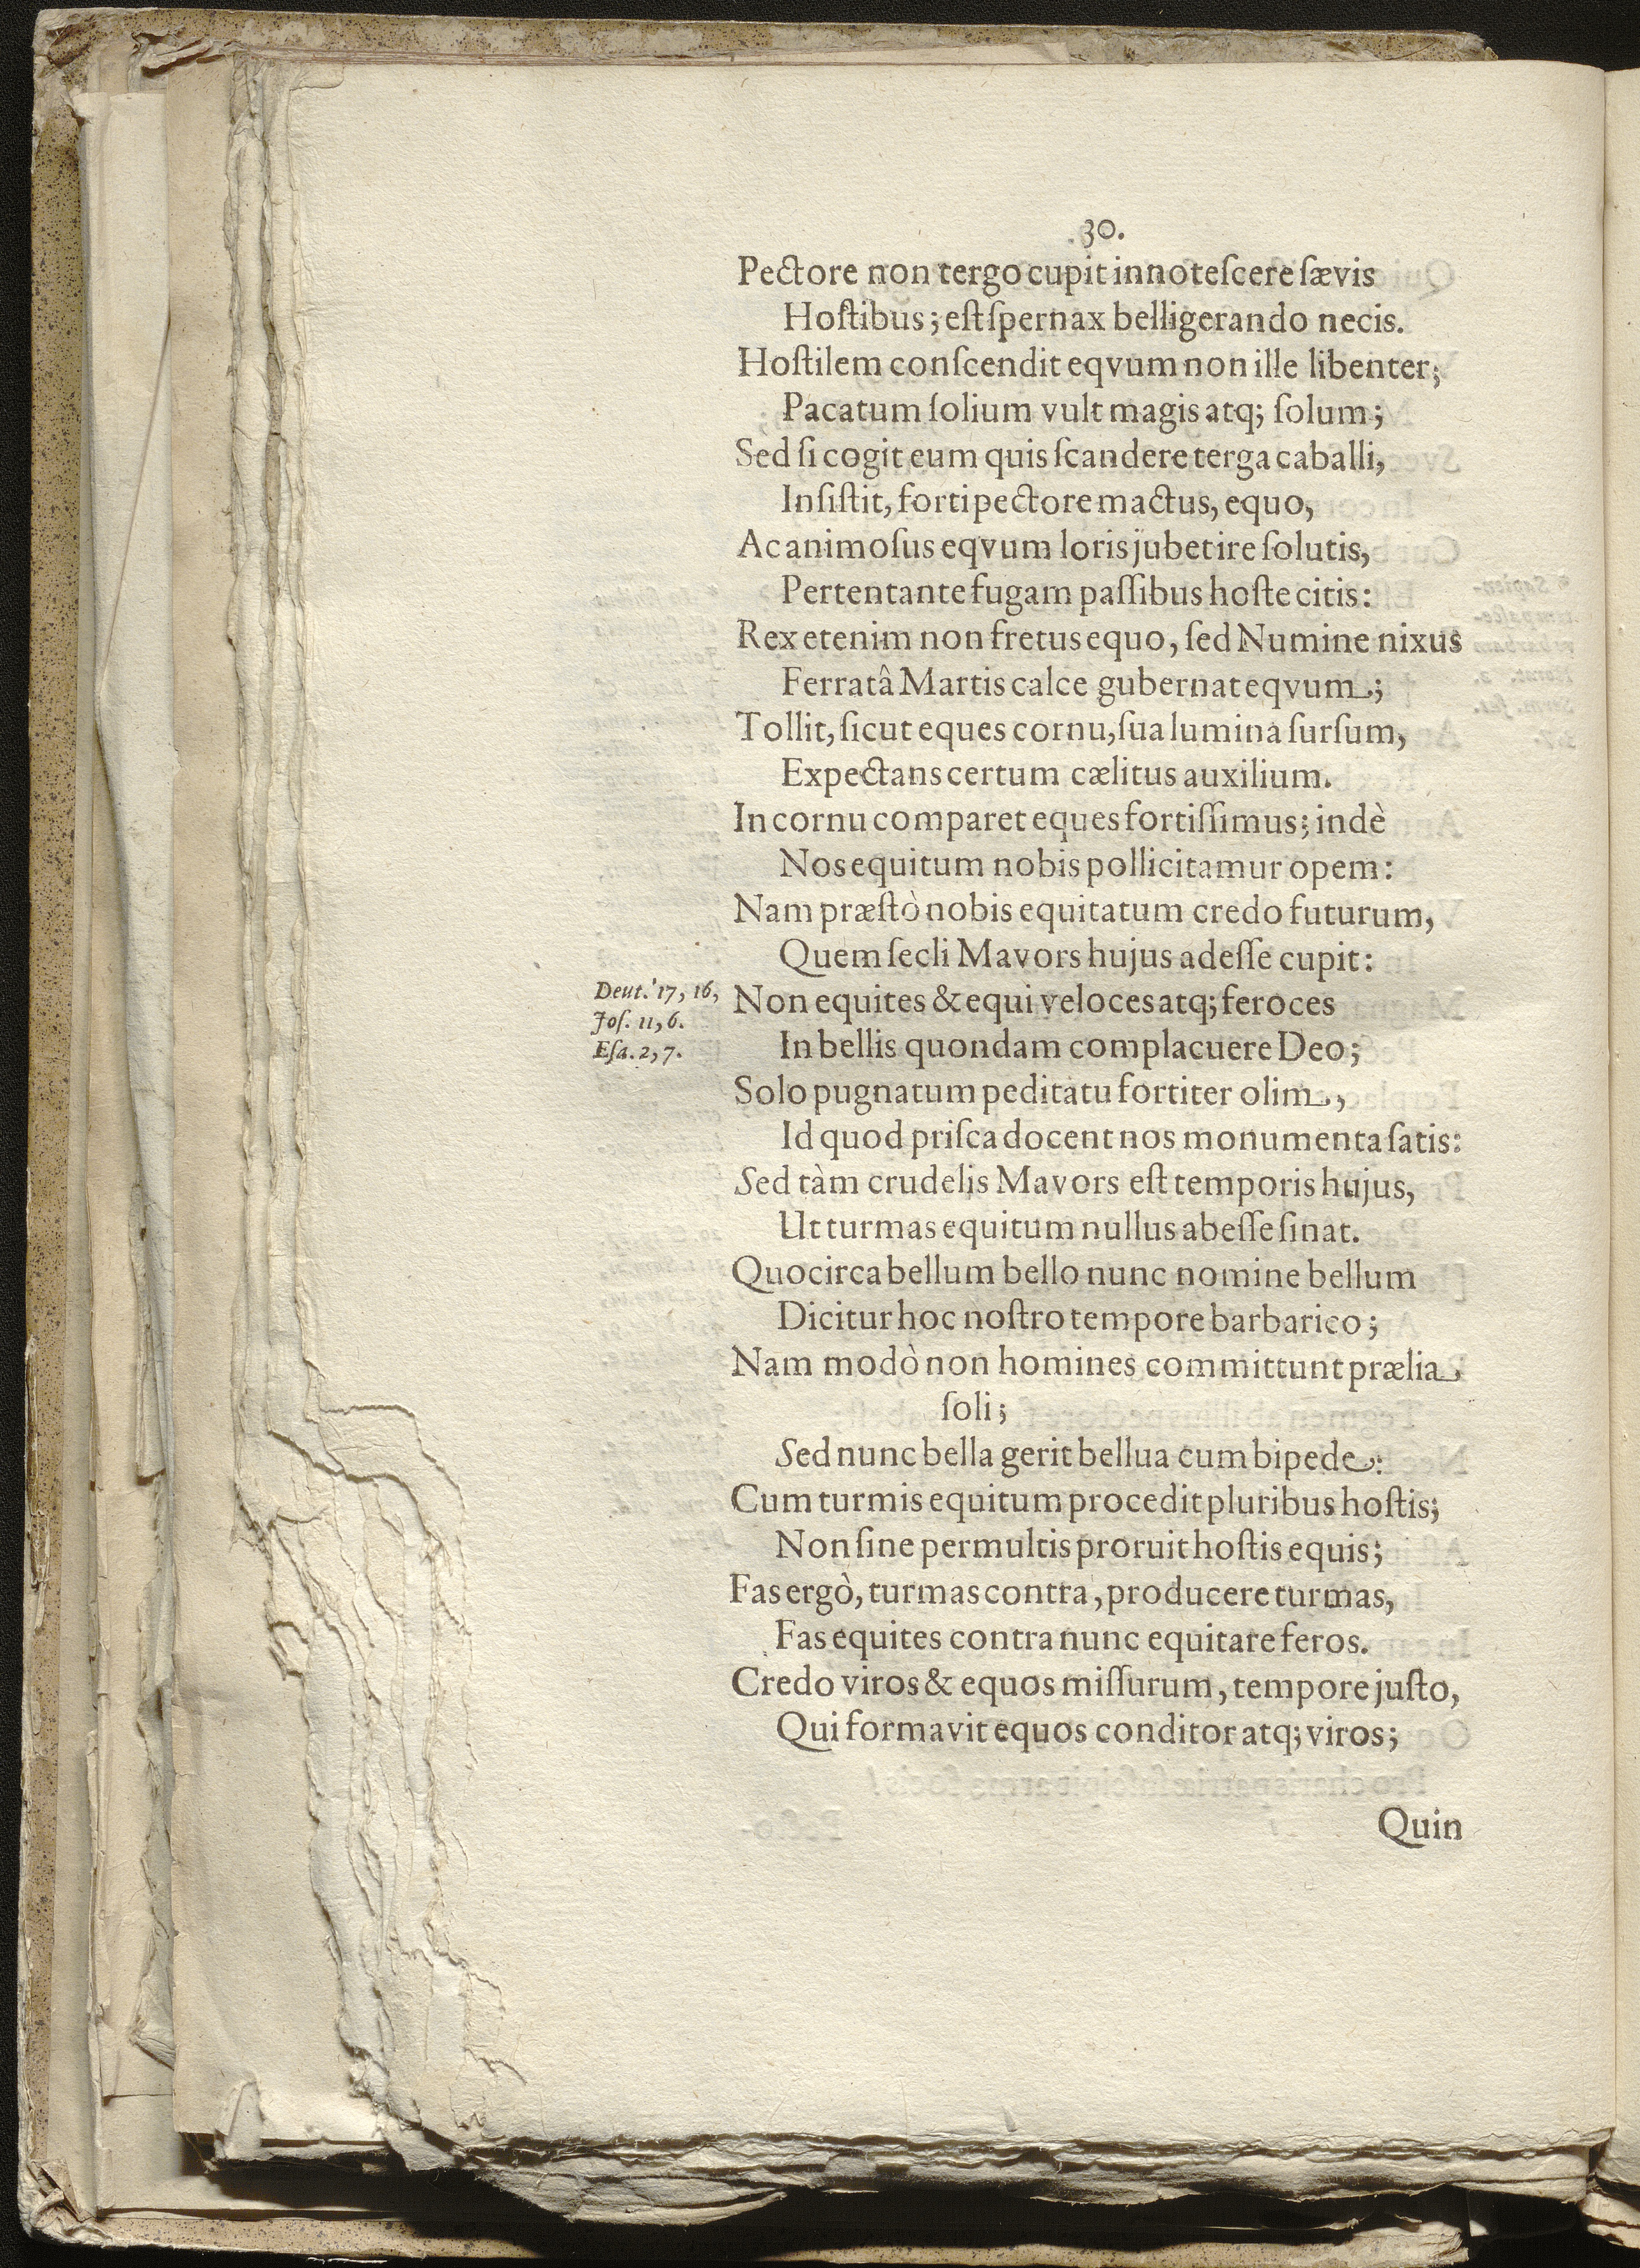 30.
Pectore non tergo cupit innoteſcere ſævis
Hoſtibus; eſt ſpernax belligerando necis.
Hoſtilem conſcendit eqvum non ille libenter;
Pacatum ſolium vult magis atq; ſolum;
Sed ſi cogit eum quis ſcandere terga caballi,
Inſiſtit, forti pectore mactus, equo,
Ac animoſus eqvum loris jubet ire ſolutis,
Pertentante fugam paſſibus hoſte citis:
Rex etenim non fretus equo, ſed Numine nixus
Ferratâ Martis calce gubernat eqvum;
Tollit, ſicut eques cornu, ſua lumina ſurſum,
Expectans certum cælitus auxilium.
In cornu comparet eques fortiſſimus; indè
Nos equitum nobis pollicitamur opem:
Nam præſtò nobis equitatum credo futurum,
Quem ſecli Mavors hujus adeſſe cupit:
Deut. 17, 16,
Joſ. 11, 6.
Eſa. 2, 7.
Non equites & equi veloces atq; feroces
In bellis quondam complacuere Deo;
Solo pugnatum peditatu fortiter olim,
Id quod priſca docent nos monumenta ſatis:
Sed tàm crudelis Mavors eſt temporis hujus,
Ut turmas equitum nullus abeſſe ſinat.
Quocirca bellum bello nunc nomine bellum
Dicitur hoc noſtro tempore barbarico;
Nam modò non homines committunt prælia
ſoli;
Sed nunc bella gerit bellua cum bipede:
Cum turmis equitum procedit pluribus hoſtis;
Non ſine permultis proruit hoſtis equis;
Fas ergò, turmas contra, producere turmas,
Fas equites contra nunc equitare feros.
Credo viros & equos miſſurum, tempore juſto,
Qui formavit equos conditor atq; viros;
Quin